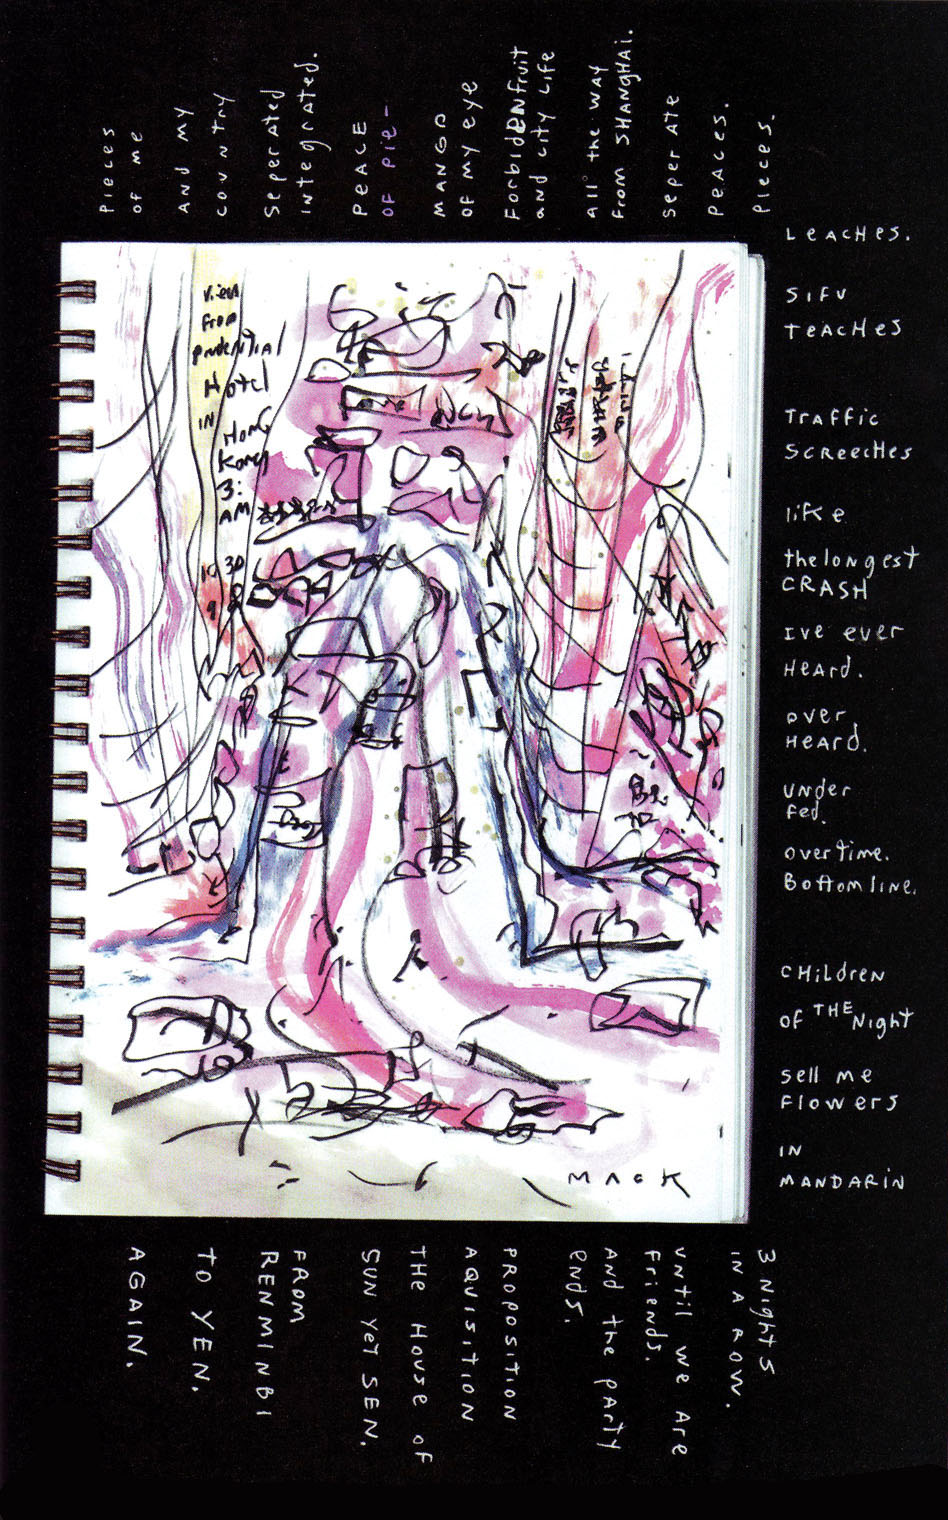 PIECES
OF ME
AND MY
COUNTRY
SEPERATED
INTEGRATED.
PEACE
OF PIE-
MANGO
OF MY EYE
FORBIDENFRUIT
AND CITY LIFE
All the WAY
from SHANGHAI.
SEPERATE
PEACES.
PIECES.
LEACHES.
SIFU
TEACHES
TRAFFIC
SCREECHES
like
the longest
CRASH
I've ever
HEARD.
over
HEARD.
UNDER
Fed.
over time.
Bottom line.
CHildren
of THE Night
sell me
FLOWERS
IN
MANDARIN
3 Nights
IN A ROW.
UNTIL WE ARE
Friends.
And the PARTY
ENDS.
PROPOSITION
AQUISITION
THE HOUSE OF
SUN YET SEN.
FROM
RENMINBI
TO YEN.
AGAIN.
View
from
prudential
Hotel
IN
Hong
Kong
3:
AM
MACK